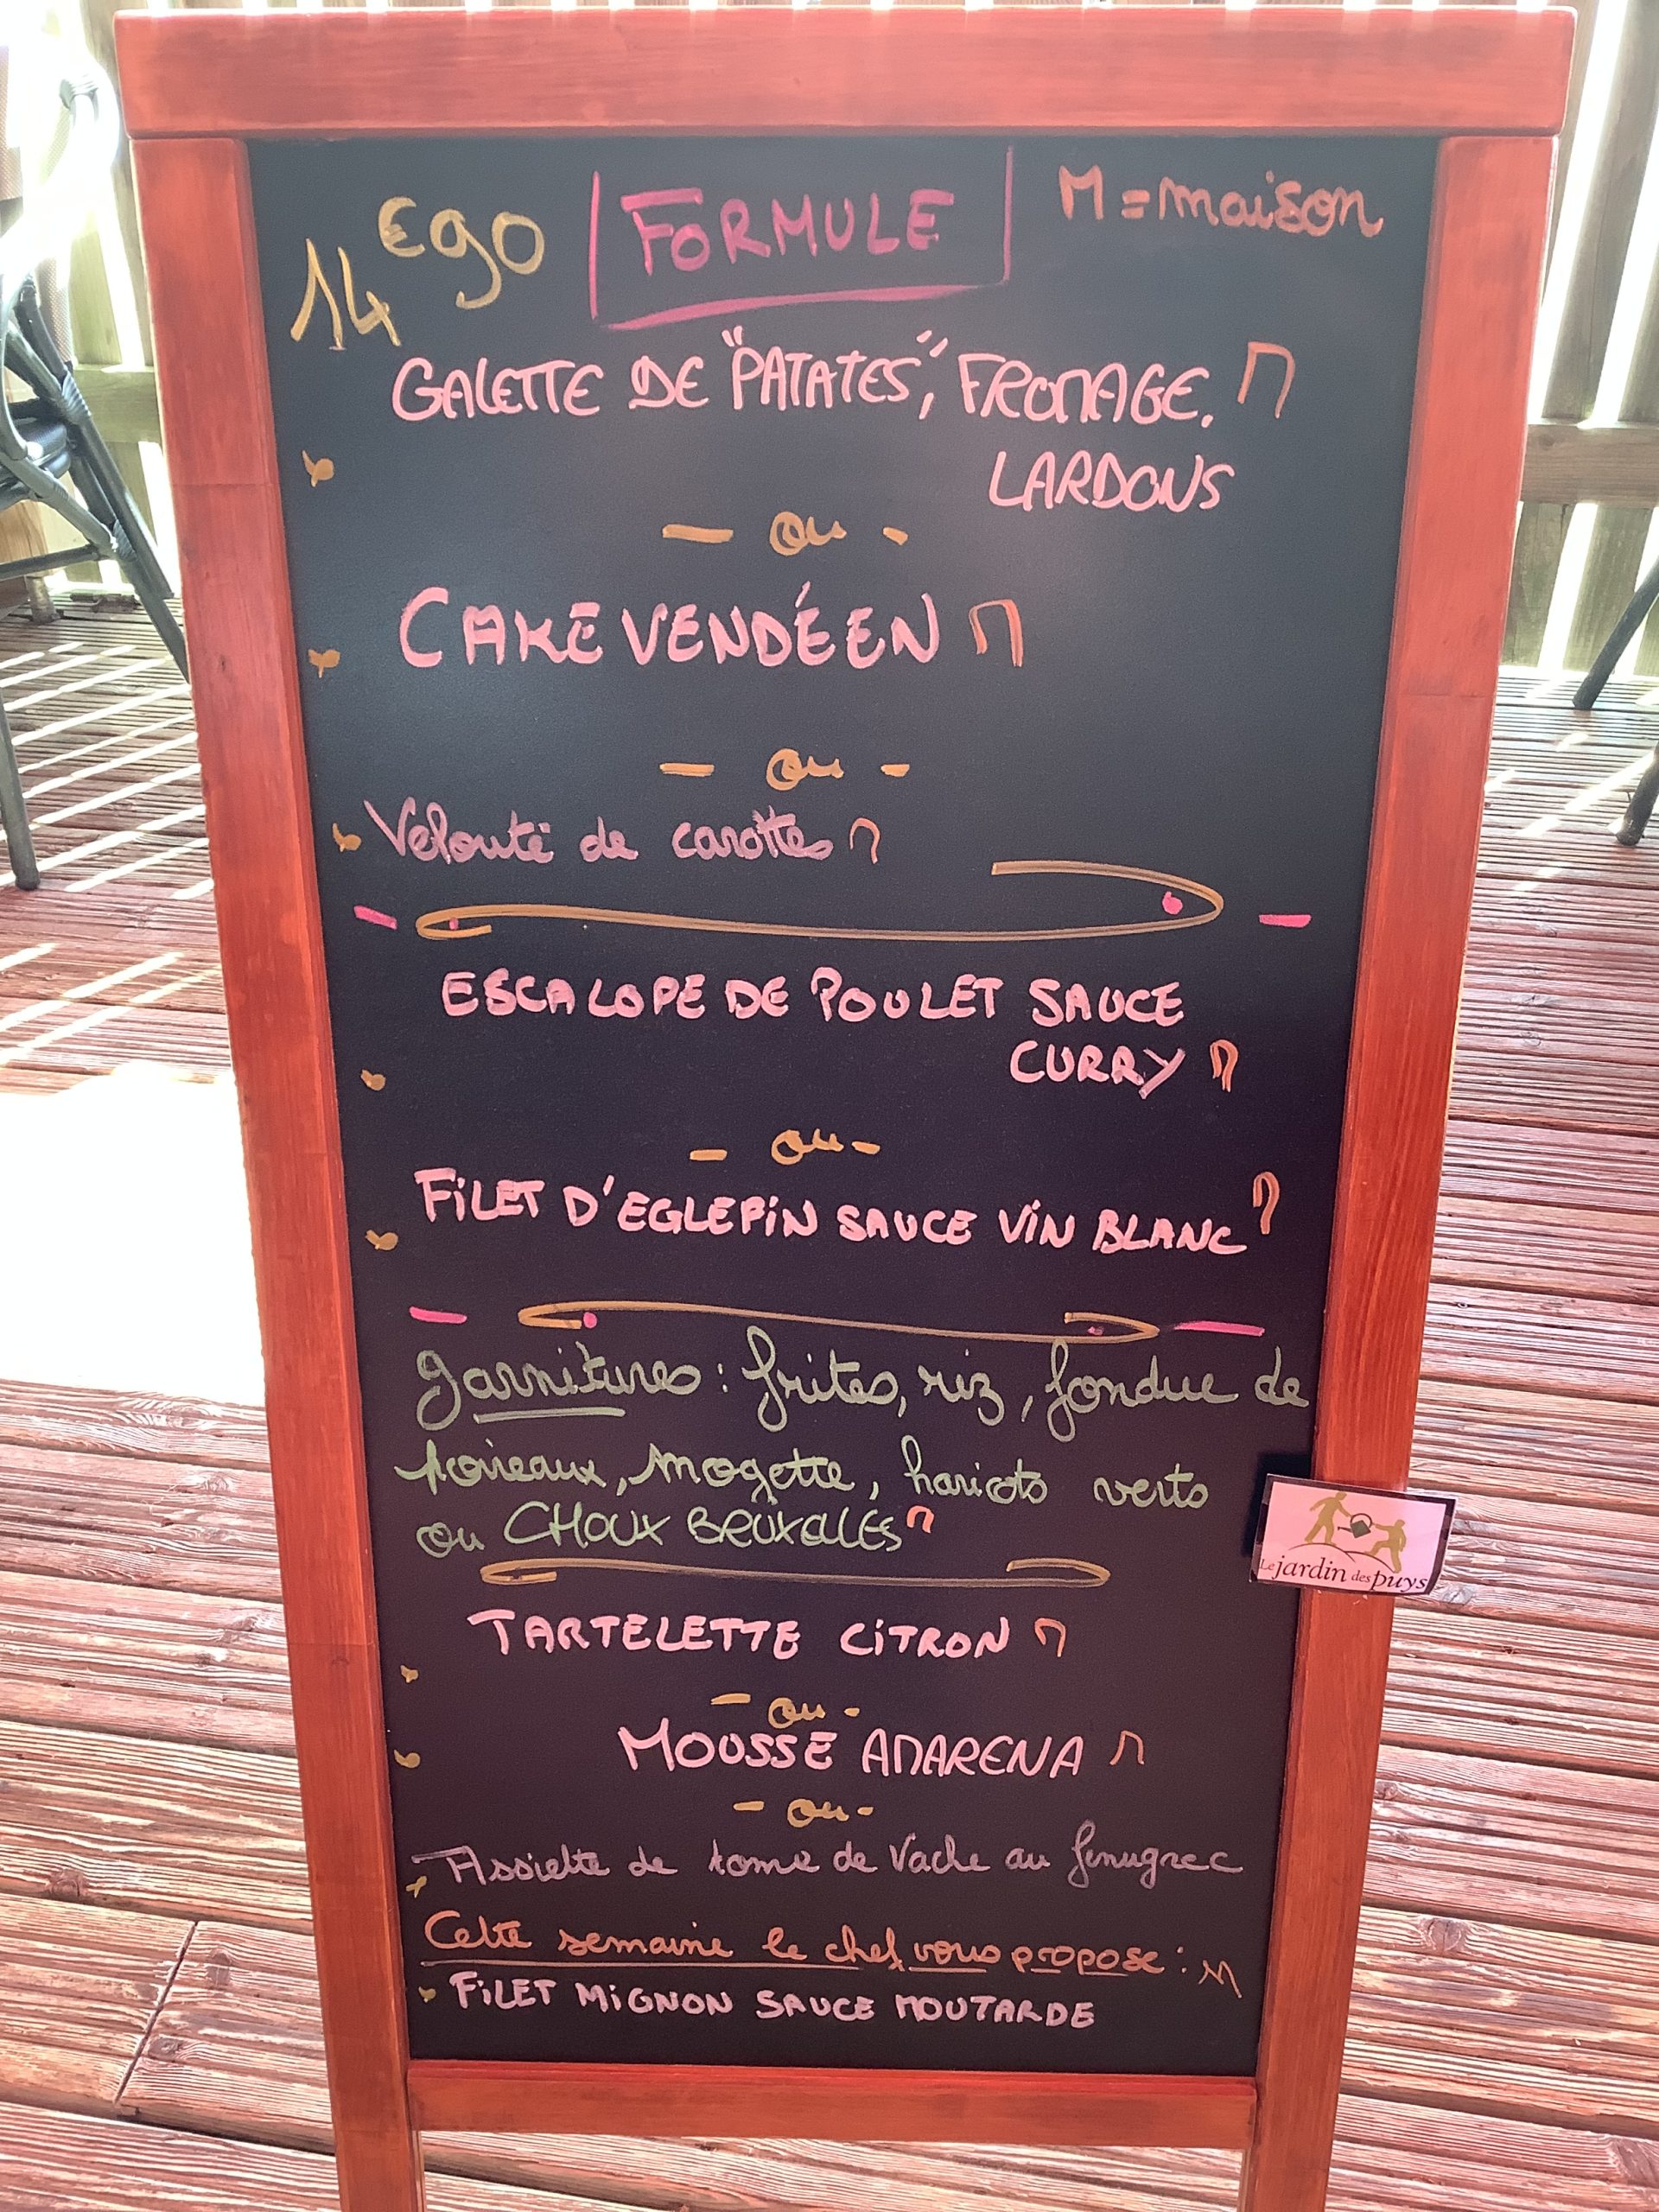 14€90 FORMULE M = maison
GALETTE DE "PATATES", FROMAGE.
LARDONS M
- ou -
CAKE VENDÉEN M
- ou -
Velouté de carottes M
ESCALOPE DE POULET SAUCE
CURRY M
- ou -
FILET D'EGLEFIN SAUCE VIN BLANC M
garnitures : frites, riz, fondue de
poireaux, mogette, haricots verts
ou CHOUX BRUXELLES M
Le jardin des puys
TARTELETTE CITRON M
- ou -
MOUSSE AMARENA M
- ou -
Assiette de tome de Vache au fenugrec
Cette semaine le chef vous propose : M
FILET MIGNON SAUCE MOUTARDE